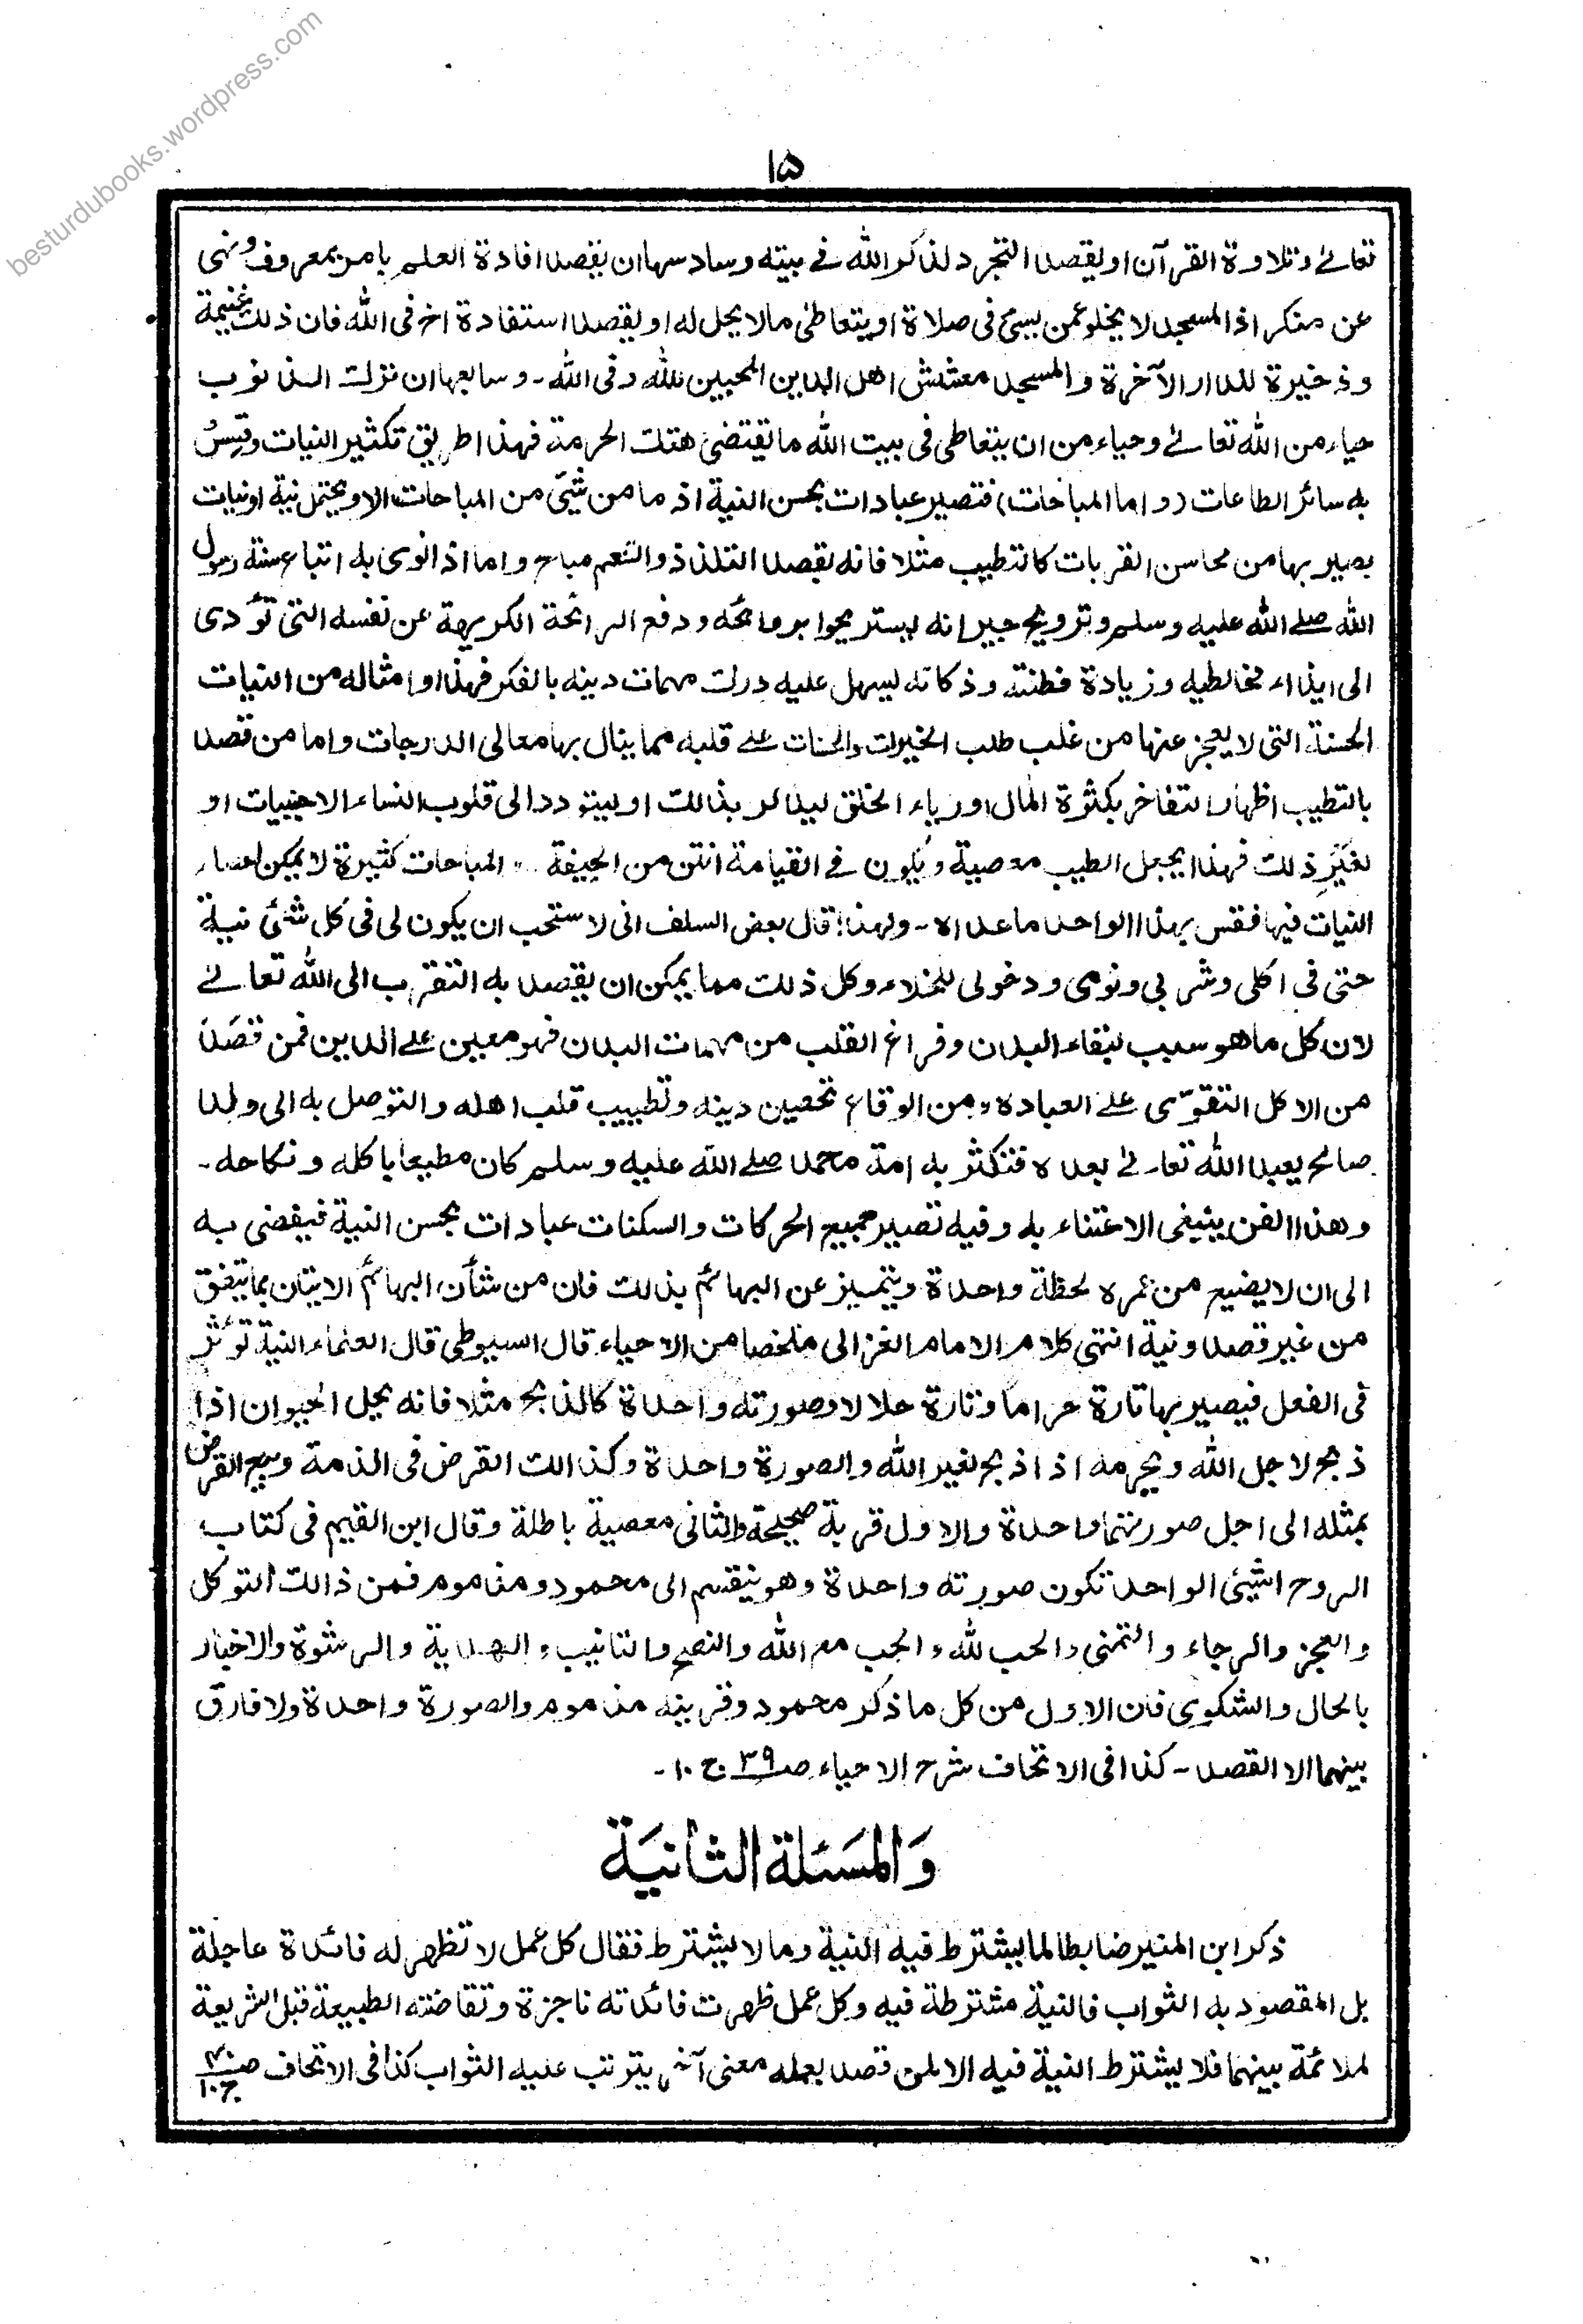 besturdubooks.wordpress.com
۱۵
تعالے وتلاوة القرآن او يقصد التجرد لذكر الله فے بيته وسادسها ان يقصد افادة العلم بامر بمعروف ونهى
عن منكر اذ المسجد لا يخلو عمن يسئ فى صلاة او يتعاطى مالا يحل له او يقصد استفادة اخ فى الله فان ذلك غنيمة
وذخيرة للدار الآخرة والمسجد معشش اهل الدين المحبين لله وفى الله۔ وسابعها ان نزلت الذنوب
حياء من الله تعالے وحياء من ان يتعاطى فى بيت الله ما تقتضى هتك الحرمة فهذا طريق تكثير النيات وقِسْ
به سائر الطاعات (واما المباحات) فتصير عبادات بحسن النية اذ ما من شئ من المباحات الا ويحتمل نية او نيات
يصير بها من محاسن القربات كالتطيب مثلا فانه بقصد التلذذ والتنعم مباح واما اذا نوى به اتباع سنة رسول
الله صلے الله عليه وسلم وترويح جيرانه ليستريحوا بروائحه ودفع الرائحة الكريهة عن نفسه التى تؤدى
الى ايذاء مخالطيه وزيادة فطنته وذكائه ليسهل عليه درك مهمات دينه بالفكر فهذا او امثاله من النيات
الحسنة التى لا يعجز عنها من غلب طلب الخيرات والحسنات علے قلبه مما ينال بها معالى الدرجات واما من قصد
بالتطيب اظهار التفاخر بكثرة المال او رياء الخلق ليذكر بذالك او ليتودد الى قلوب النساء الاجنبيات او
لغير ذلك فهذا يجعل الطيب معصية ويكون فے القيامة انتن من الجيفة۔ المباحات كثيرة لا يمكن احصاء
النيات فيها فقس بهذا الواحد ماعداه۔ ولهذا قال بعض السلف انى لا ستحب ان يكون لى فى كل شئ نية
حتى فى اكلى وشربى ونومى ودخولى للخلاء وكل ذلك مما يمكن ان يقصد به التقرب الى الله تعالے
لان كل ما هو سبب لبقاء البدن وفراغ القلب من مهمات البدن فهو معين علے الدين فمن قصَدَ
من الاكل التقوّى علے العبادة ومن الوقاع تحصين دينه وتطييب قلب اهله والتوصل به الى ولد
صالح يعبد الله تعالے بعده فتكثر به امة محمد صلے الله عليه وسلم كان مطيعا باكله ونكاحه۔
وهذا الفن ينبغى الاعتناء به وفيه تصير جميع الحركات والسكنات عبادات بحسن النية فيفضى به
الى ان لا يضيع من عمره لحظة واحدة ويتميز عن البهائم بذلك فان من شأن البهائم الاتيان بما يتفق
من غير قصد ونية انتهى كلام الامام الغزالى ملخصا من الاحياء قال السيوطى قال العلماء النية تؤثر
فى الفعل فيصير بها تارة حراما وتارة حلالا وصورته واحدة كالذبح مثلا فانه يحل الحيوان اذا
ذبح لاجل الله ويحرمه اذا ذبح لغير الله والصورة واحدة وكذالك القرض فى الذمة وبيع القرض
بمثله الى اجل صورتهما واحدة والاول قربة صحيحة والثانى معصية باطلة وقال ابن القيم فى كتاب
الروح الشيئ الواحد تكون صورته واحدة وهو ينقسم الى محمود ومذموم فمن ذالك التوكل
والعجز والرجاء والتمنى والحب لله والحب مع الله والنصح والتانيب والهدية والرشوة والاخبار
بالحال والشكوى فان الاول من كل ما ذكر محمود وقرينه مذموم والصورة واحدة ولا فارق
بينهما الا القصد۔ كذا فى الاتحاف شرح الاحياء ص۳۹ ج ۱۰۔
وَالمَسَئلة الثانيَة
ذكر ابن المنير ضابطا لما يشترط فيه النية وما لا يشترط فقال كل عمل لا تظهر له فائدة عاجلة
بل المقصود به الثواب فالنية مشترطة فيه وكل عمل ظهرت فائدته ناجزة وتقاضته الطبيعة قبل الشريعة
لملائمة بينهما فلا يشترط النية فيه الا لمن قصد بعمله معنى آخر يترتب عليه الثواب كذا فى الاتحاف ج۱۰